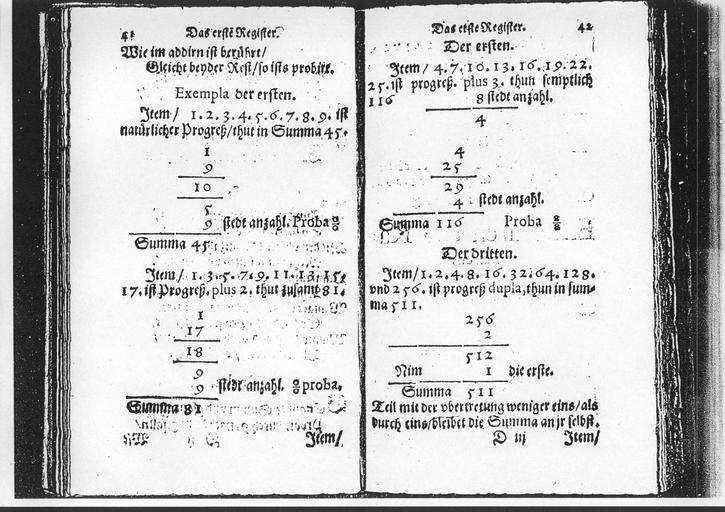 41 Das erste Register.
Wie im addirn ist berührt/
Gleicht beyder Rest/so ists probirt.
Exempla der ersten.
Item/ 1. 2. 3. 4. 5. 6. 7. 8. 9. ist
natürlicher Progreß/thut in Summa 45.
1
9
10
5
9 stedt anzahl. Proba 0/0
Summa 45
Item/ 1. 3. 5. 7. 9. 11. 13. 15.
17. ist Progreß. plus 2. thut zusamt 81.
1
17
18
9
9 stedt anzahl. 0/0 proba.
Summa 81
Item/
Das erste Register. 42
Der ersten.
Item/ 4. 7. 10. 13. 16. 19. 22.
25. ist progreß. plus 3. thun semptlich
116 8 stedt anzahl.
4
4
25
29
4 stedt anzahl.
Summa 116 Proba 8/8
Der dritten.
Item/ 1. 2. 4. 8. 16. 32. 64. 128.
vnd 256. ist progreß dupla, thun in sum-
ma 511.
256
2
512
Nim 1 die erste.
Summa 511
Teil mit der vbertretung weniger eins/als
durch eins/bleibet die Summa an jr selbst.
D iij Item/